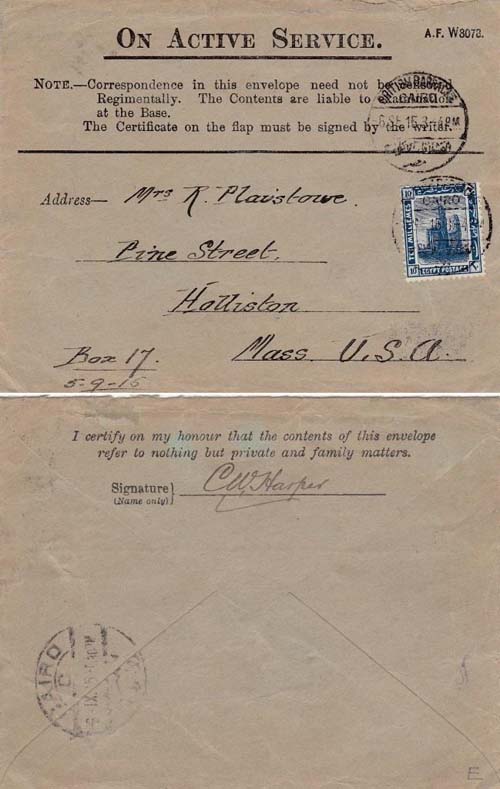 ON ACTIVE SERVICE.
A.F. W3078.
NOTE.—Correspondence in this envelope need not be censored
Regimentally. The Contents are liable to examination
at the Base.
The Certificate on the flap must be signed by the writer.
CAIRO
6 SE 15
Address— Mrs R. Plaistowe.
Pine Street.
Holliston
Mass. U.S.A.
Box 17.
5-9-15
CAIRO
10
TEN MILLIEMES
EGYPT POSTAGE
I certify on my honour that the contents of this envelope
refer to nothing but private and family matters.
Signature} C W Harper
(Name only)
CAIRO
IX
E